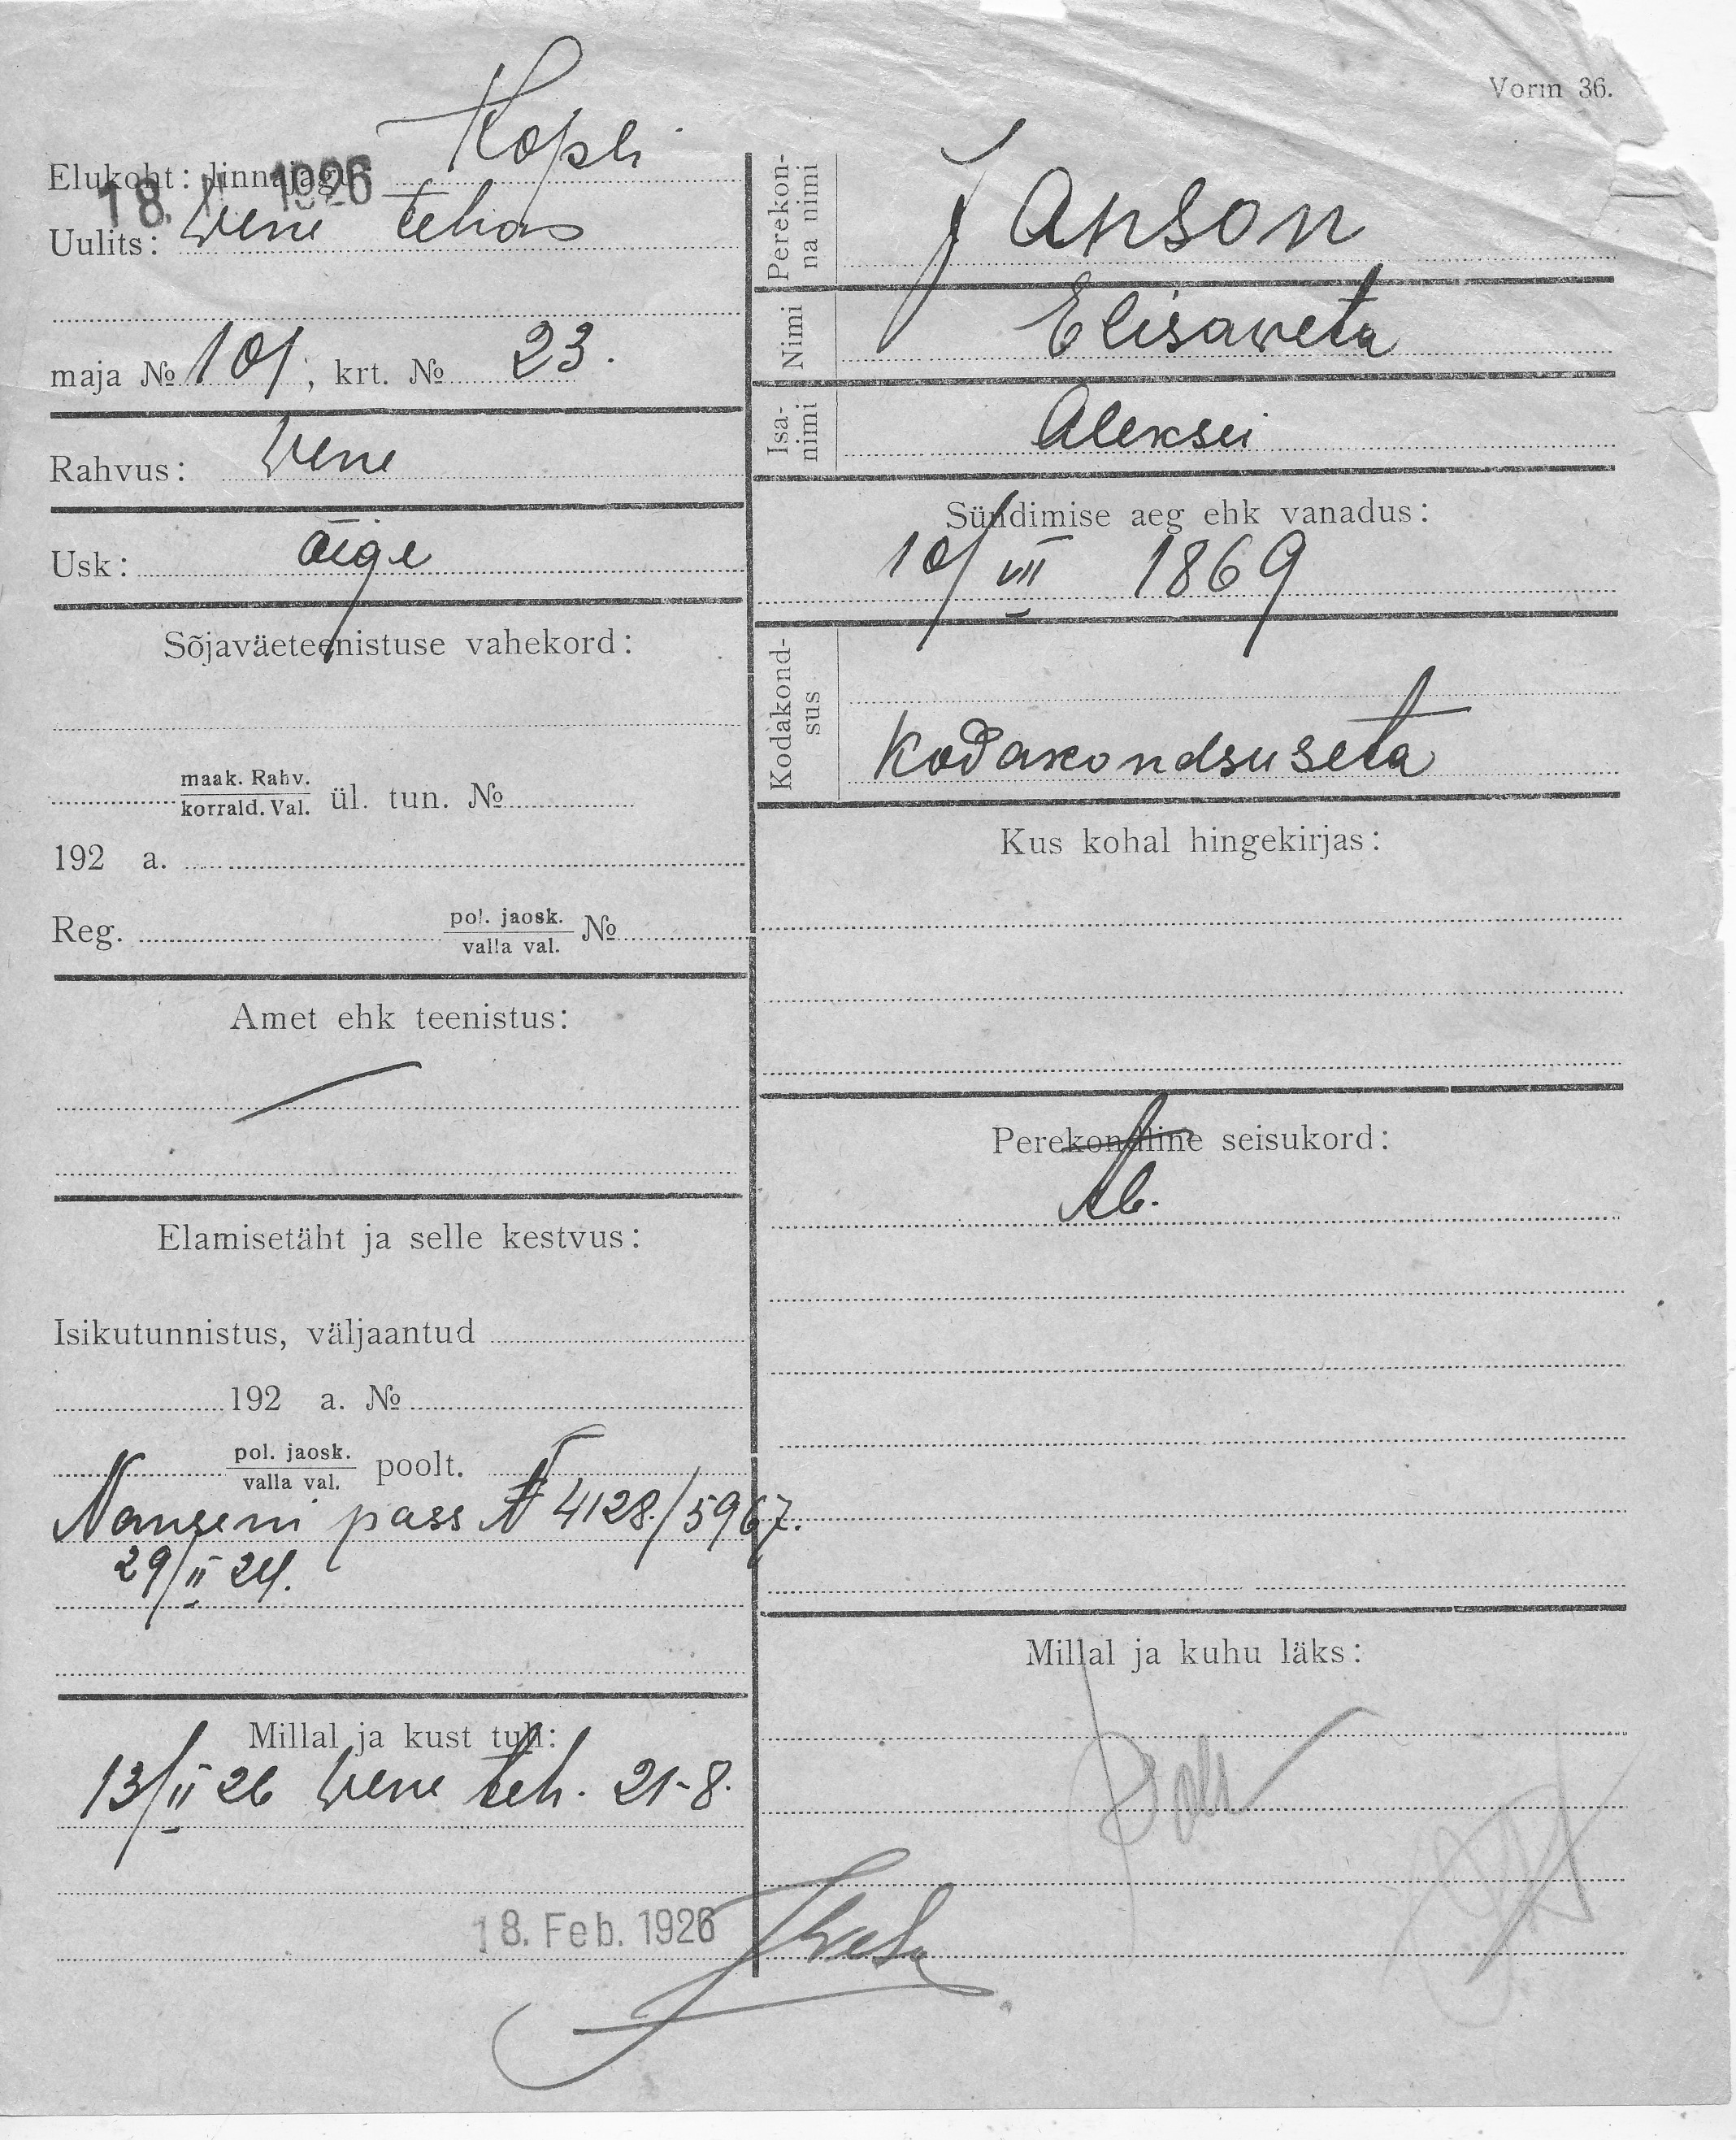 Vorm 36.
Elukoht: linnajagu Kopli
18. II 1926
Uulits: Wene tehas
maja № 101, krt. № 23.
Rahvus: Wene
Usk: õige
Sõjaväeteenistuse vahekord:
maak. Rahv.
korrald. Val. ül. tun. №
192 a.
Reg. pol. jaosk.
valla val. №
Amet ehk teenistus:
Elamisetäht ja selle kestvus:
Isikutunnistus, väljaantud
192 a. №
pol. jaosk.
valla val. poolt.
Nanseni pass № 4128./5967.
29/II 24.
Millal ja kust tuli:
13/II 26 Wene teh. 21-8.
18. Feb. 1926
Perekon-
na nimi Janson
Nimi Elisaweta
Isa-
nimi Aleksei
Sündimise aeg ehk vanadus:
10/VII 1869
Kodakond-
sus
Kodakondsuseta
Kus kohal hingekirjas:
Perekondline seisukord:
Ab.
Millal ja kuhu läks: